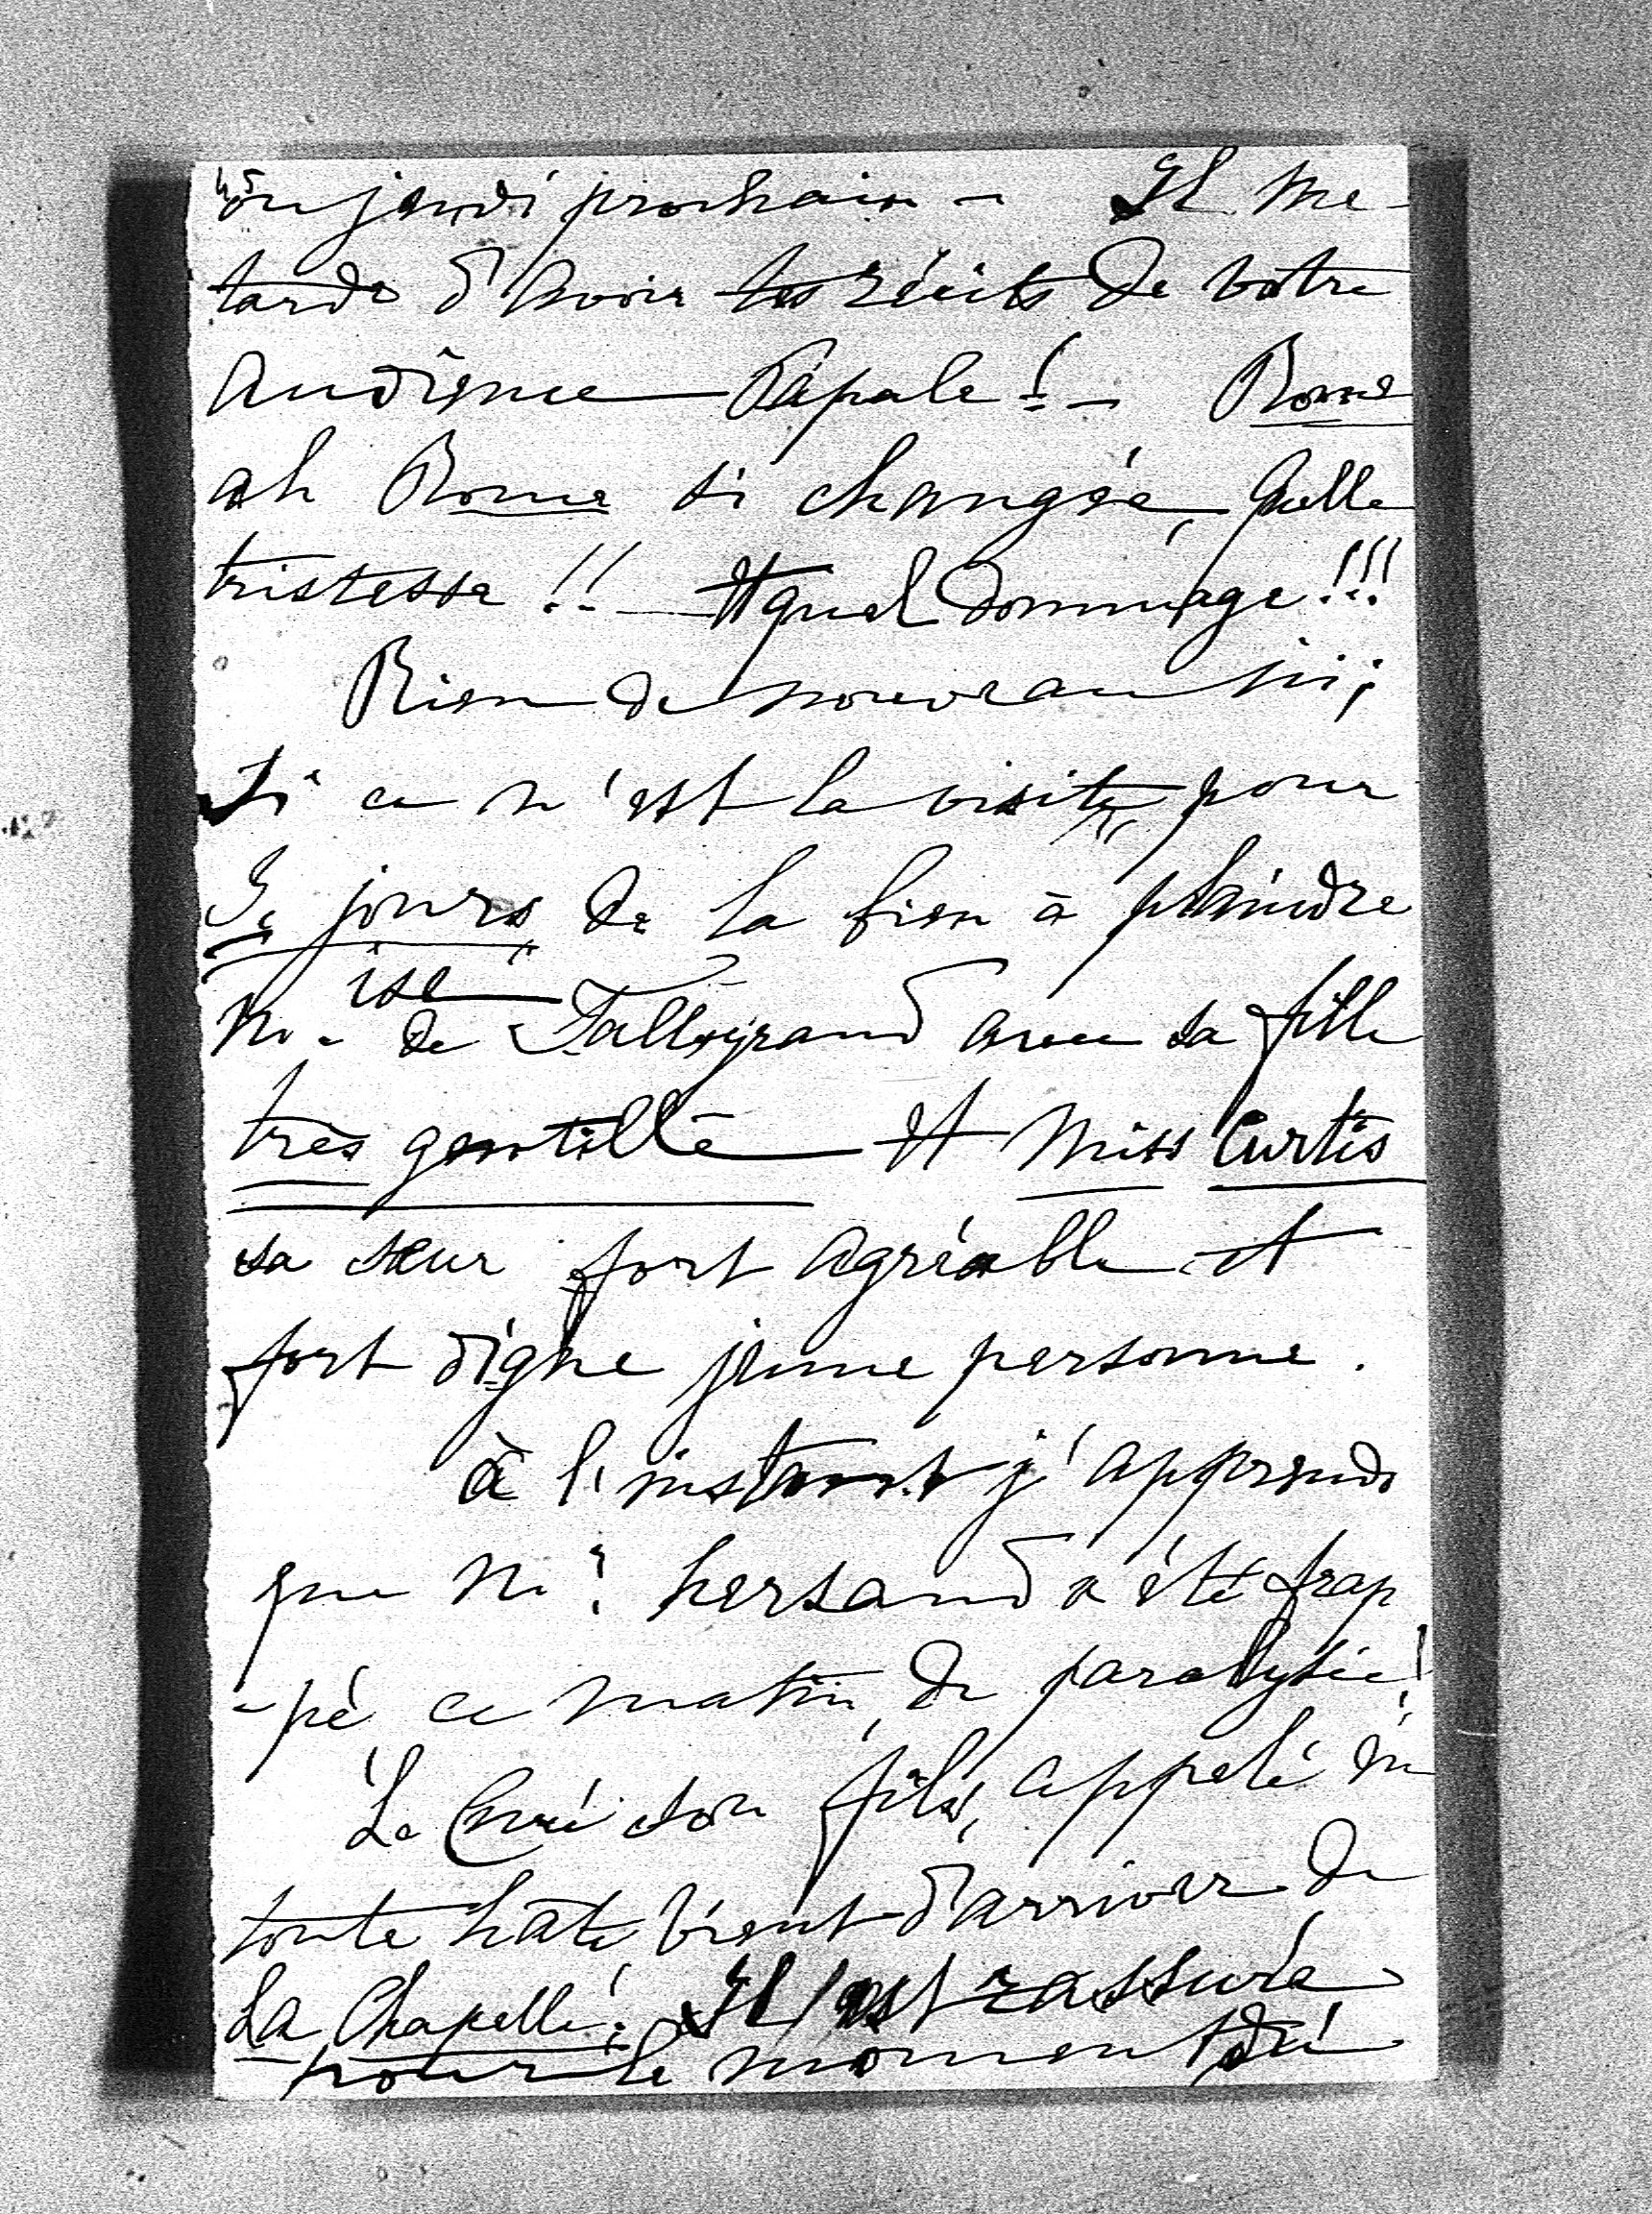 ou jeudi prochain — Il me
tarde d'avoir les récits de votre
audience Papale! — Rome
ah Rome si changée, quelle
tristesse!! — Et quel dommage!!!
Rien de nouveau ici;
si ce n'est la visite, pour
jours de la bien à plaindre
Mise de Talleyrand avec sa fille
très gentille — et Miss Curtis
sa sœur fort agréable et
fort digne jeune personne.
à l'instant j'apprends
que Mr hersand a été frap
-pé ce matin, de paralysie!
Le Curé son fils, appelé en
toute hâte, vient d'arriver de
La Chapelle! Il est rassuré
pour le moment du